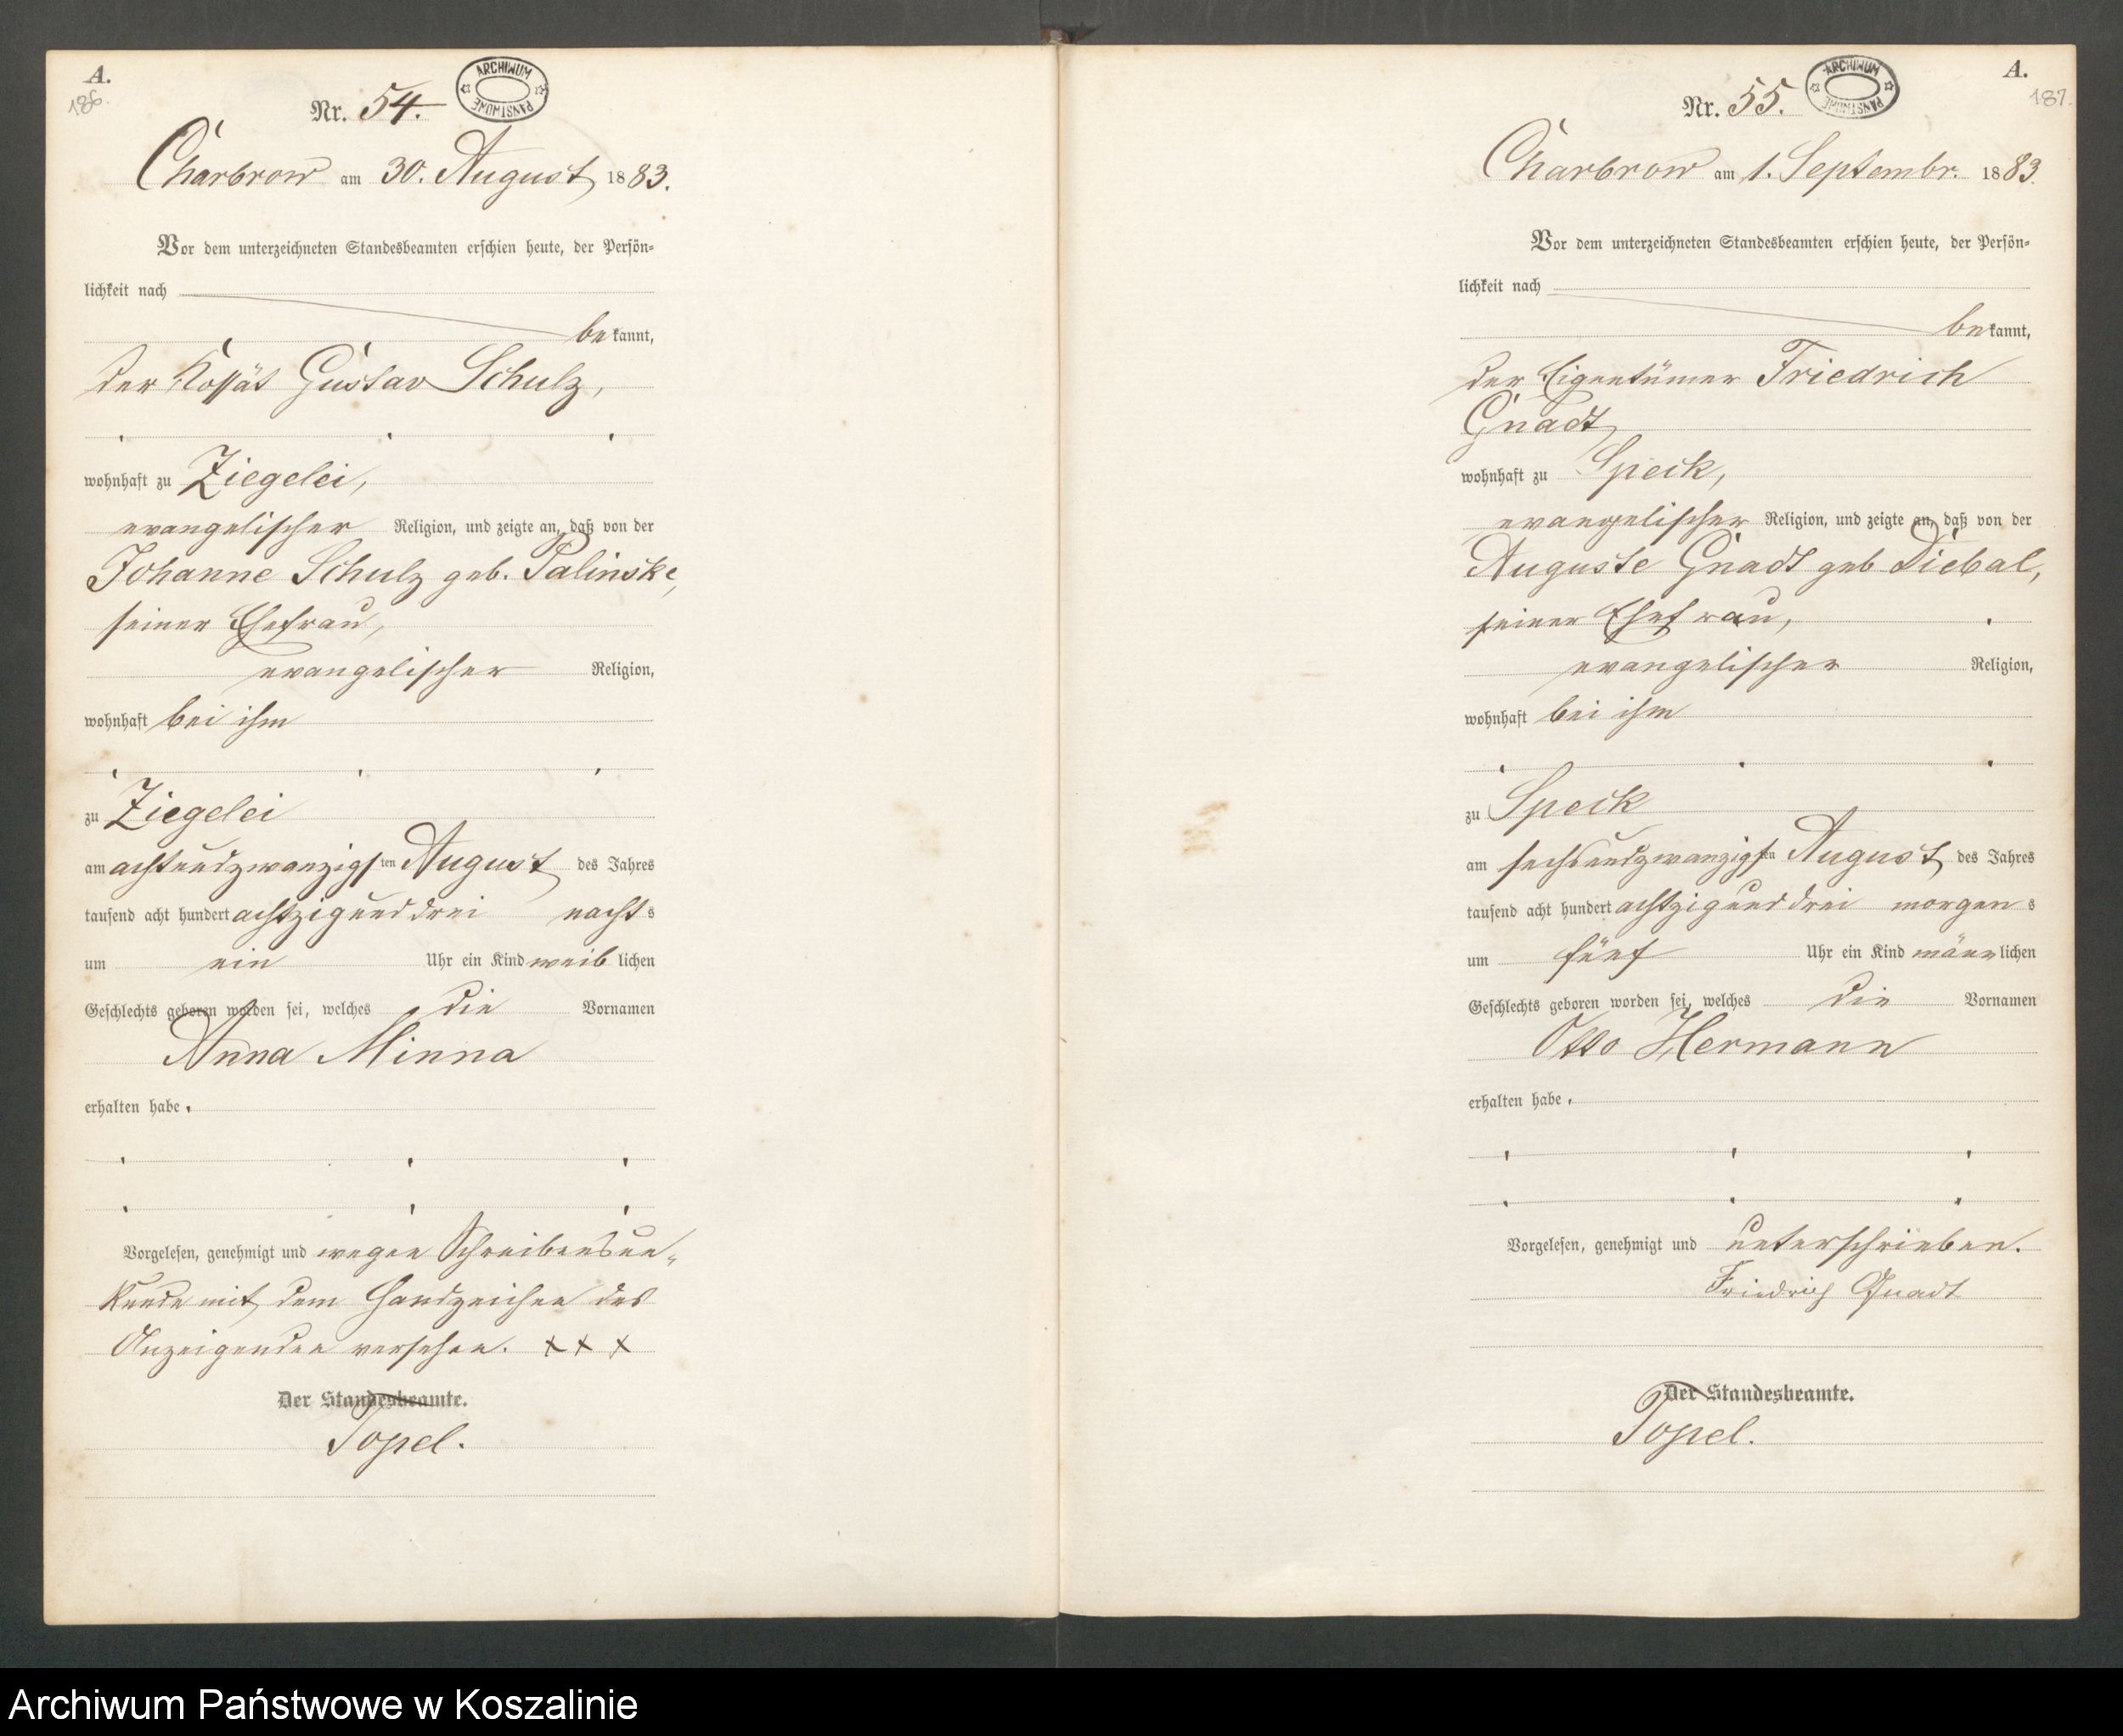 A.
186.
Nr. 54.
ARCHIWUM PAŃSTWOWE
Charbrow am 30. August 1883.
Vor dem unterzeichneten Standesbeamten erschien heute, der Persön-
lichkeit nach
bekannt,
der Kossät Gustav Schulz,
wohnhaft zu Ziegelei,
evangelischer Religion, und zeigte an, daß von der
Johanne Schulz geb. Palinske,
seiner Ehefrau,
evangelischer Religion,
wohnhaft bei ihm
zu Ziegelei
am achtundzwanzigsten August des Jahres
tausend acht hundert achtzig und drei nachts
um ein Uhr ein Kind weiblichen
Geschlechts geboren worden sei, welches die Vornamen
Anna Minna
erhalten habe.
Vorgelesen, genehmigt und wegen Schreibensun-
kunde mit dem Handzeichen des
Anzeigenden versehen. x x x
Der Standesbeamte.
Topel.
A.
187.
Nr. 55.
ARCHIWUM PAŃSTWOWE
Charbrow am 1. Septembr. 1883.
Vor dem unterzeichneten Standesbeamten erschien heute, der Persön-
lichkeit nach
bekannt,
der Eigentümer Friedrich
Gnadt,
wohnhaft zu Speck,
evangelischer Religion, und zeigte an, daß von der
Auguste Gnadt geb Diebal,
seiner Ehefrau,
evangelischer Religion,
wohnhaft bei ihm
zu Speck
am sechsundzwanzigsten August des Jahres
tausend acht hundert achtzig und drei morgens
um fünf Uhr ein Kind männlichen
Geschlechts geboren worden sei, welches die Vornamen
Otto Hermann
erhalten habe.
Vorgelesen, genehmigt und unterschrieben.
Friedrich Gnadt
Der Standesbeamte.
Topel.
Archiwum Państwowe w Koszalinie